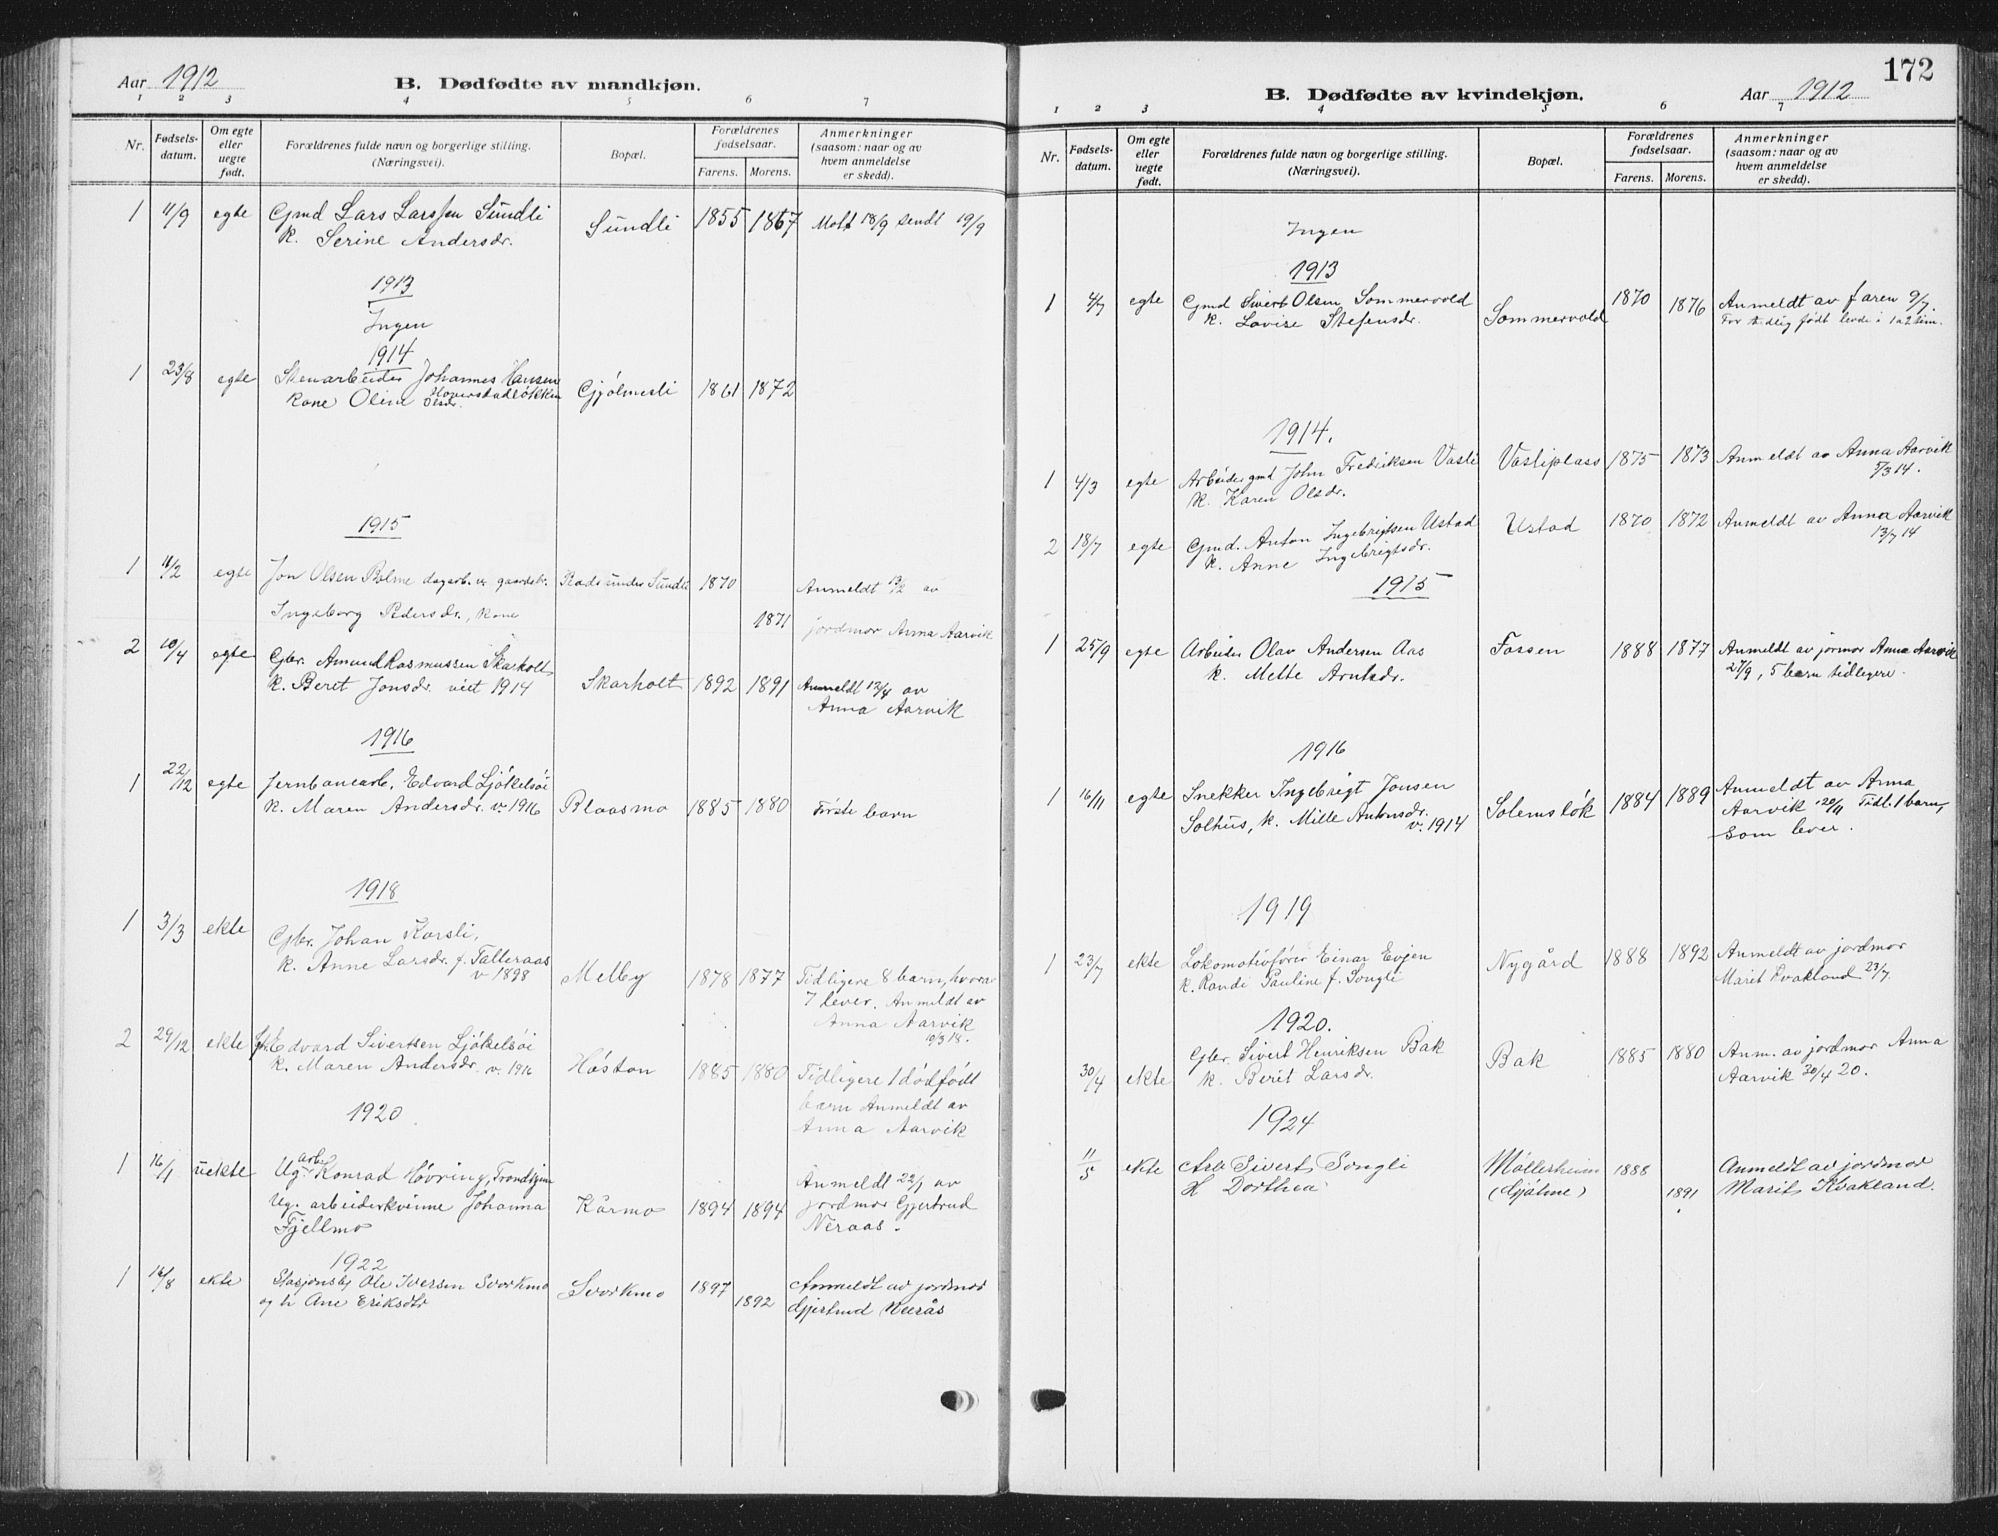 Aar 1912
B. Dødfødte av mandkjøn.
1 2 3 4 5 6 7
Nr.
Fødsels-datum.
Om egte eller uegte født.
Forældrenes fulde navn og borgerlige stilling. (Næringsvei).
Bopæl.
Forældrenes fødselsaar.
Farens. Morens.
Anmerkninger (saasom: naar og av hvem anmeldelse er skedd).
1 11/9 egte Gmd Lars Larssen Sundli Sundli 1855 1867 Mott 18/9 sendt 19/9
k. Serine Andersdr.
1913
Ingen
1914
1 23/8 egte Stenarbeider Johannes Hansen Gjølmesli 1861 1872
Kone Oline Olsdr. Hoverstadløkken
1915
1 11/2 egte Jon Olsen Bolme dagarb. v. gaardsbr. Stads under Sundli 1870 Anmeldt 13/2 av
Ingeborg Pedersdr., kone 1871 jordmor Anna Aarvik
2 10/4 egte Gbr. Amund Rasmussen Skarholt
k. Beret Jonsdr. viet 1914 Skarholt 1892 1891 Anmeldt 12/4 av
Anna Aarvik
1916
1 22/12 egte Jernbanearb. Edvard Ljøkelsøi
k. Maren Andersdr. v. 1916 Blaasmo 1885 1880 Første barn
1918
1 3/3 ekte Gbr. Johan Korsli,
k. Anne Larsdr. f. Talleraas
v 1898 Melby 1878 1877 Tidligere 8 barn, hvorav
7 lever. Anmeldt av
Anna Aarvik
10/3 18.
2 29/12 ekte Edvard Sivertsen Ljøkelsøi
k. Maren Andersdr. v. 1916 Høston 1885 1880 Tidligere 1 dødfødt
barn Anmeldt av
Anna Aarvik
1920
1 16/1 uekte Ug. arb. Konrad Høvring, Trondhjem
Ug. arbeiderkvinne Johanna Kårmo 1894 1894 Anmeldt 22/1 av
jordmor Gjertrud
Fjellmo Neraas.
1922
1 16/8 ekte Stasjonsbtj Ole Iversen Svorkmo Svorkmo 1897 Anmeldt av jordmor
og h Ane Eriksdtr 1892 Gjertrud Neerås
172
B. Dødfødte av kvindekjøn.
Aar 1912
1 2 3 4 5 6 7
Nr.
Fødsels-datum.
Om egte eller uegte født.
Forældrenes fulde navn og borgerlige stilling. (Næringsvei).
Bopæl.
Forældrenes fødselsaar.
Farens. Morens.
Anmerkninger (saasom: naar og av hvem anmeldelse er skedd).
Ingen
1913
1 4/7 egte Gmd Sivert Olsen Sommervold Sommervold 1870 1876 Anmeldt av faren 9/7.
k. Lovise Stefensdr. For tidlig født levde i 1 a 2 tim.
1914.
1 4/3 egte Arbeider gmd John Fredriksen Vasli Vasliplass 1875 1873 Anmeldt av Anna Aarvik
k. Karen Olsdr. 5/3 14.
2 18/7 egte Gmd. Anton Ingebrigtsen Ustad Ustad 1870 1872 Anmeldt av Anna Aarvik
k. Anne Ingebrigtsdr. 13/7 14
1915
1 25/9 egte Arbeider Olav Andersen Aas Fossen 1888 1877 Anmeldt av jormor Anna Aarvik
k. Mette Arntsdr. 27/9, 5 barn tidligere.
1916
1 16/11 egte Snekker Ingebrigt Jonsen Solemsløk 1884 1889 Anmeldt av Anna
Solhus, k. Mille Antonsdr. Aarvik 20/11 Tidl. 1 barn,
v. 1914 som lever.
1919
1 23/7 ekte Lokomotivfører Einar Evjen Nygård 1888 1892 Anmeldt av jordmor
k. Randi Pauline f. Songli Marit Kvakland 23/7
1920.
30/4 ekte Gbr. Sivert Henriksen Bak Bak 1885 1880 Anm. av jordmor Anna
k. Beret Larsdr. Aarvik 30/4 20.
1924
11/5 ekte Arb Sivert Songli Møllerheim 1888 Anmeldt av jordmor
H Dorthea (Gjølme) 1891 Marit Kvakland.